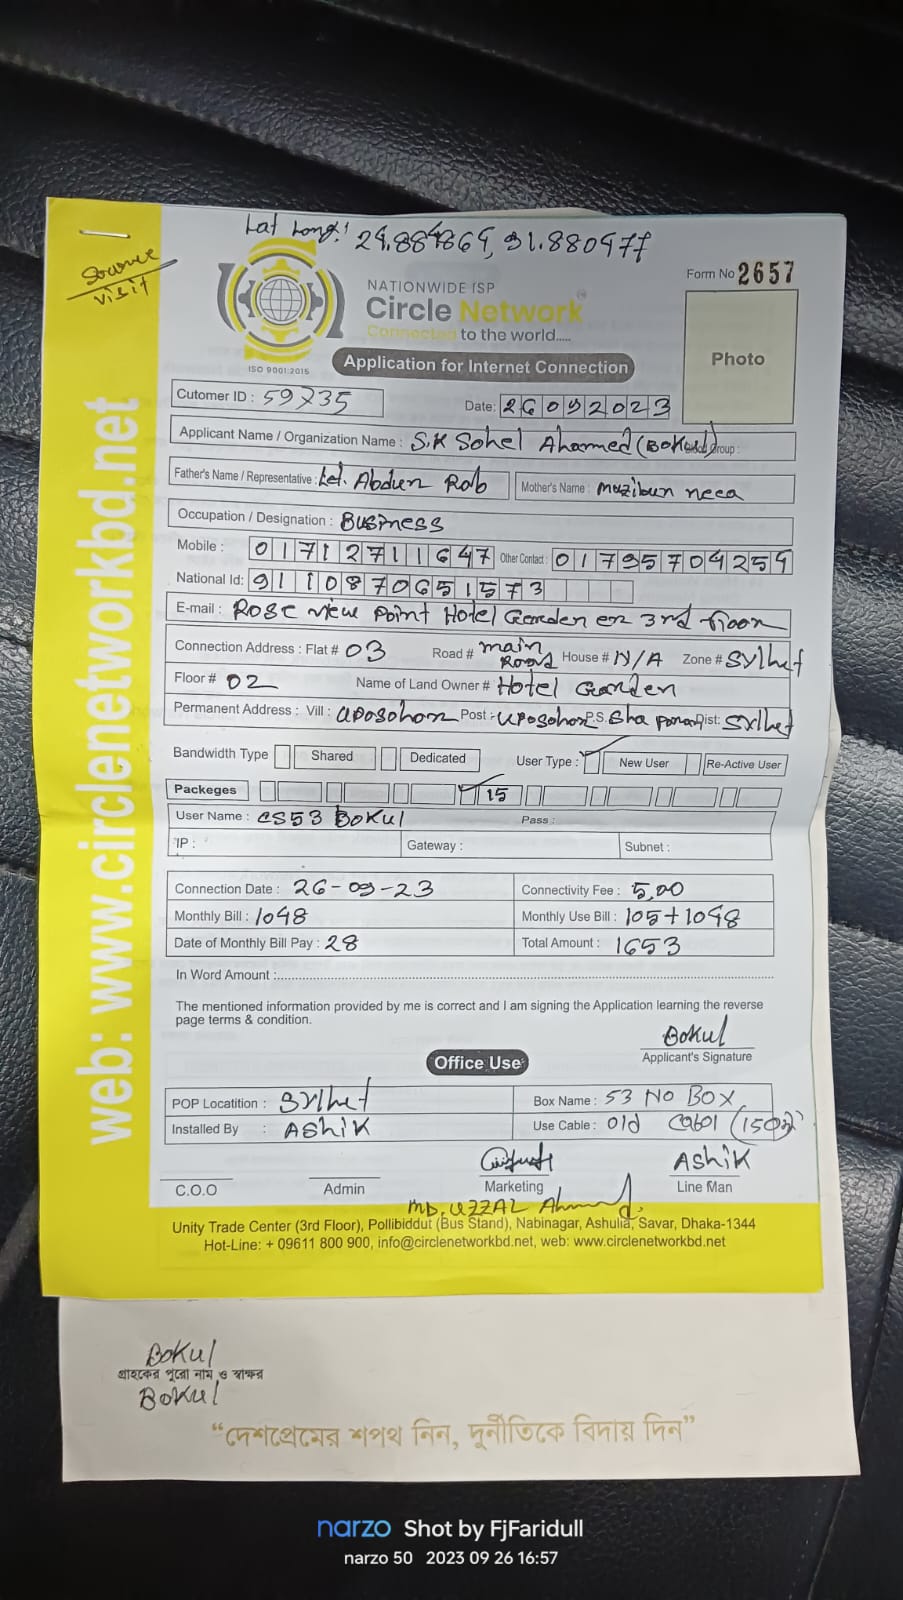 Lat Long! 24.884864, 91.880977
Source
visit
Form No 2657
NATIONWIDE ISP
Circle Network
Connected to the world.....
ISO 9001:2015
Photo
Application for Internet Connection
Cutomer ID : 59735
Date: 26092023
Applicant Name / Organization Name : S.K Sohel Ahamed (Bokul) Group :
Father's Name / Representative : Let. Abdur Rob Mother's Name : mozibun neca
Occupation / Designation : Business
Mobile : 01712711647 Other Contact : 01795704254
National Id: 9110870651573
E-mail : Rose view Point Hotel Garden er 3rd floor
Connection Address : Flat # 03 Road # main Road House # N/A Zone # Sylhet
Floor # 02 Name of Land Owner # Hotel Garden
Permanent Address : Vill : uposohor Post : uposohor P.S. Sha poran Dist: Sylhet
Bandwidth Type Shared Dedicated User Type : New User Re-Active User
Packeges 15
User Name : CS53 Bokul Pass :
IP : Gateway : Subnet :
Connection Date : 26-09-23 Connectivity Fee : 5,00
Monthly Bill : 1048 Monthly Use Bill : 105+1048
Date of Monthly Bill Pay : 28 Total Amount : 1653
In Word Amount :
The mentioned information provided by me is correct and I am signing the Application learning the reverse
page terms & condition.
Bokul
Applicant's Signature
Office Use
POP Locatition : Sylhet Box Name : 53 No Box
Installed By : Ashik Use Cable : Old
Ashik
C.O.O Admin Marketing Line Man
MD. UZZAL Ahmed.
Unity Trade Center (3rd Floor), Pollibiddut (Bus Stand), Nabinagar, Ashulia, Savar, Dhaka-1344
Hot-Line: + 09611 800 900, info@circlenetworkbd.net, web: www.circlenetworkbd.net
web: www.circlenetworkbd.net
Bokul
গ্রাহকের পুরো নাম ও স্বাক্ষর
Bokul
“দেশপ্রেমের শপথ নিন, দুর্নীতিকে বিদায় দিন”
narzo Shot by FjFaridull
narzo 50 2023 09 26 16:57